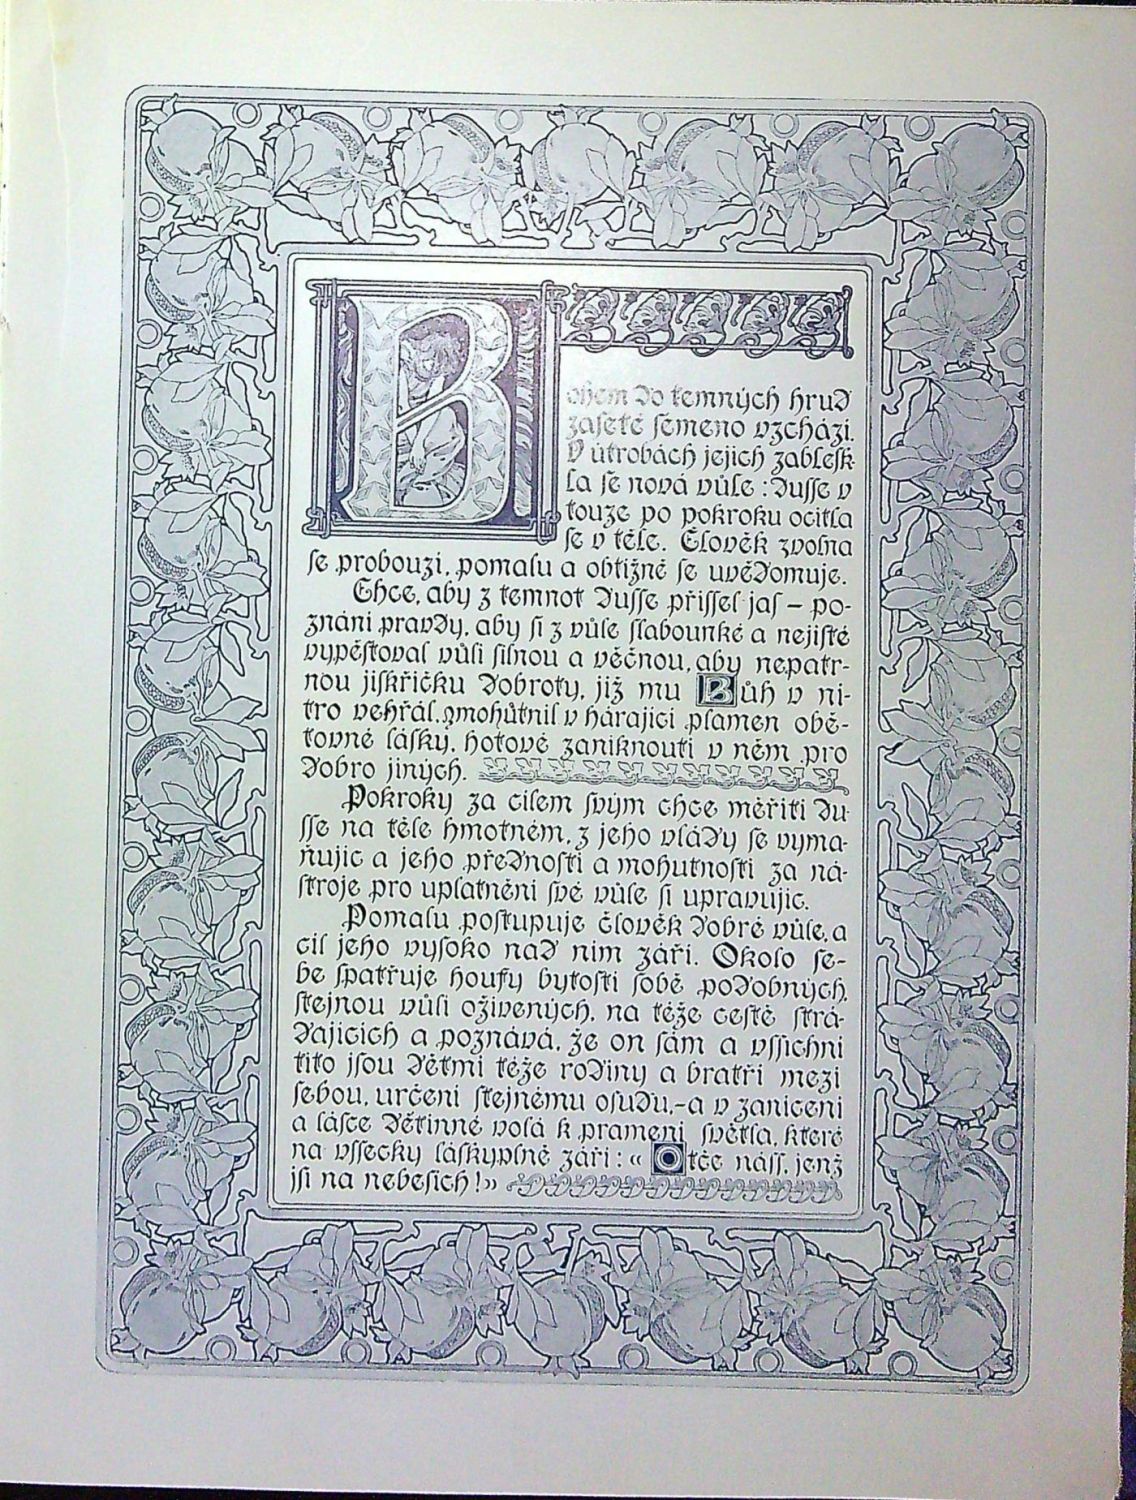 Bohem do temných hrud
zaseté semeno vzchází.
V útrobách jejich zablesk-
la se nová vůle: dusse v
touze po pokroku ocitla
se v těle. Člověk zvolna
se probouzí, pomalu a obtížně se uvědomuje.
Chce, aby z temnot dusse přissel jas – po-
znání pravdy, aby si z vůle slabounké a nejisté
vypěstoval vůli silnou a věčnou, aby nepatr-
nou jiskřičku dobroty, již mu Bůh v ni-
tro vehřál, zmohůtnil v hárající plamen obě-
tovné lásky, hotové zaniknouti v něm pro
dobro jiných.
Pokroky za cílem svým chce měřiti du-
sse na těle hmotném, z jeho vlády se vyma-
ňujíc a jeho přednosti a mohutnosti za ná-
stroje pro uplatnění své vůle si upravujíc.
Pomalu postupuje člověk dobré vůle, a
cíl jeho vysoko nad ním září. Okolo se-
be spatřuje houfy bytostí sobě podobných,
stejnou vůlí oživených, na téže cestě strá-
dajících a poznává, že on sám a vssichni
tito jsou dětmi téže rodiny a bratři mezi
sebou, určeni stejnému osudu,-a v zanícení
a lásce dětinné volá k prameni světla, které
na vssecky láskyplně září: «Otče náss, jenž
jsi na nebesích!»